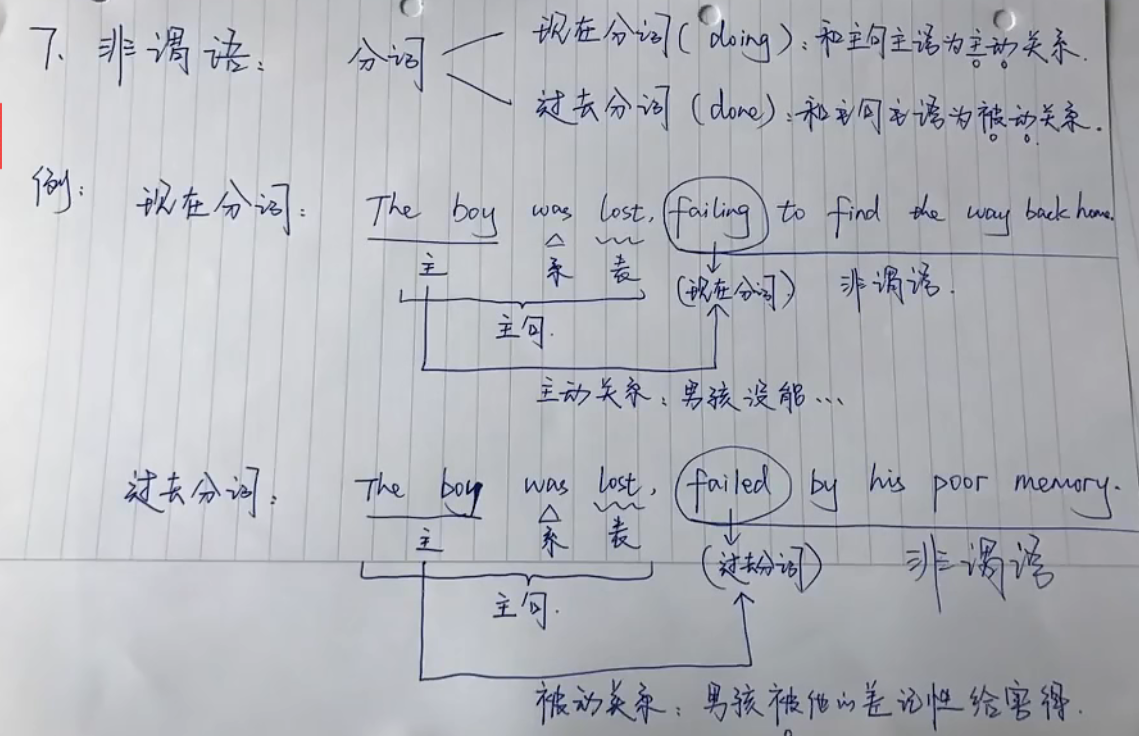 7、非谓语: 分词
现在分词(doing):和主句主语为主动关系.
过去分词(done):和主句主语为被动关系.
例: 现在分词: The boy was lost, failing to find the way back home.
主 系 表 (现在分词) 非谓语.
主句.
主动关系:男孩没能…
过去分词: The boy was lost, failed by his poor memory.
主 系 表 (过去分词) 非谓语
主句.
被动关系:男孩被他的差记性给害得.